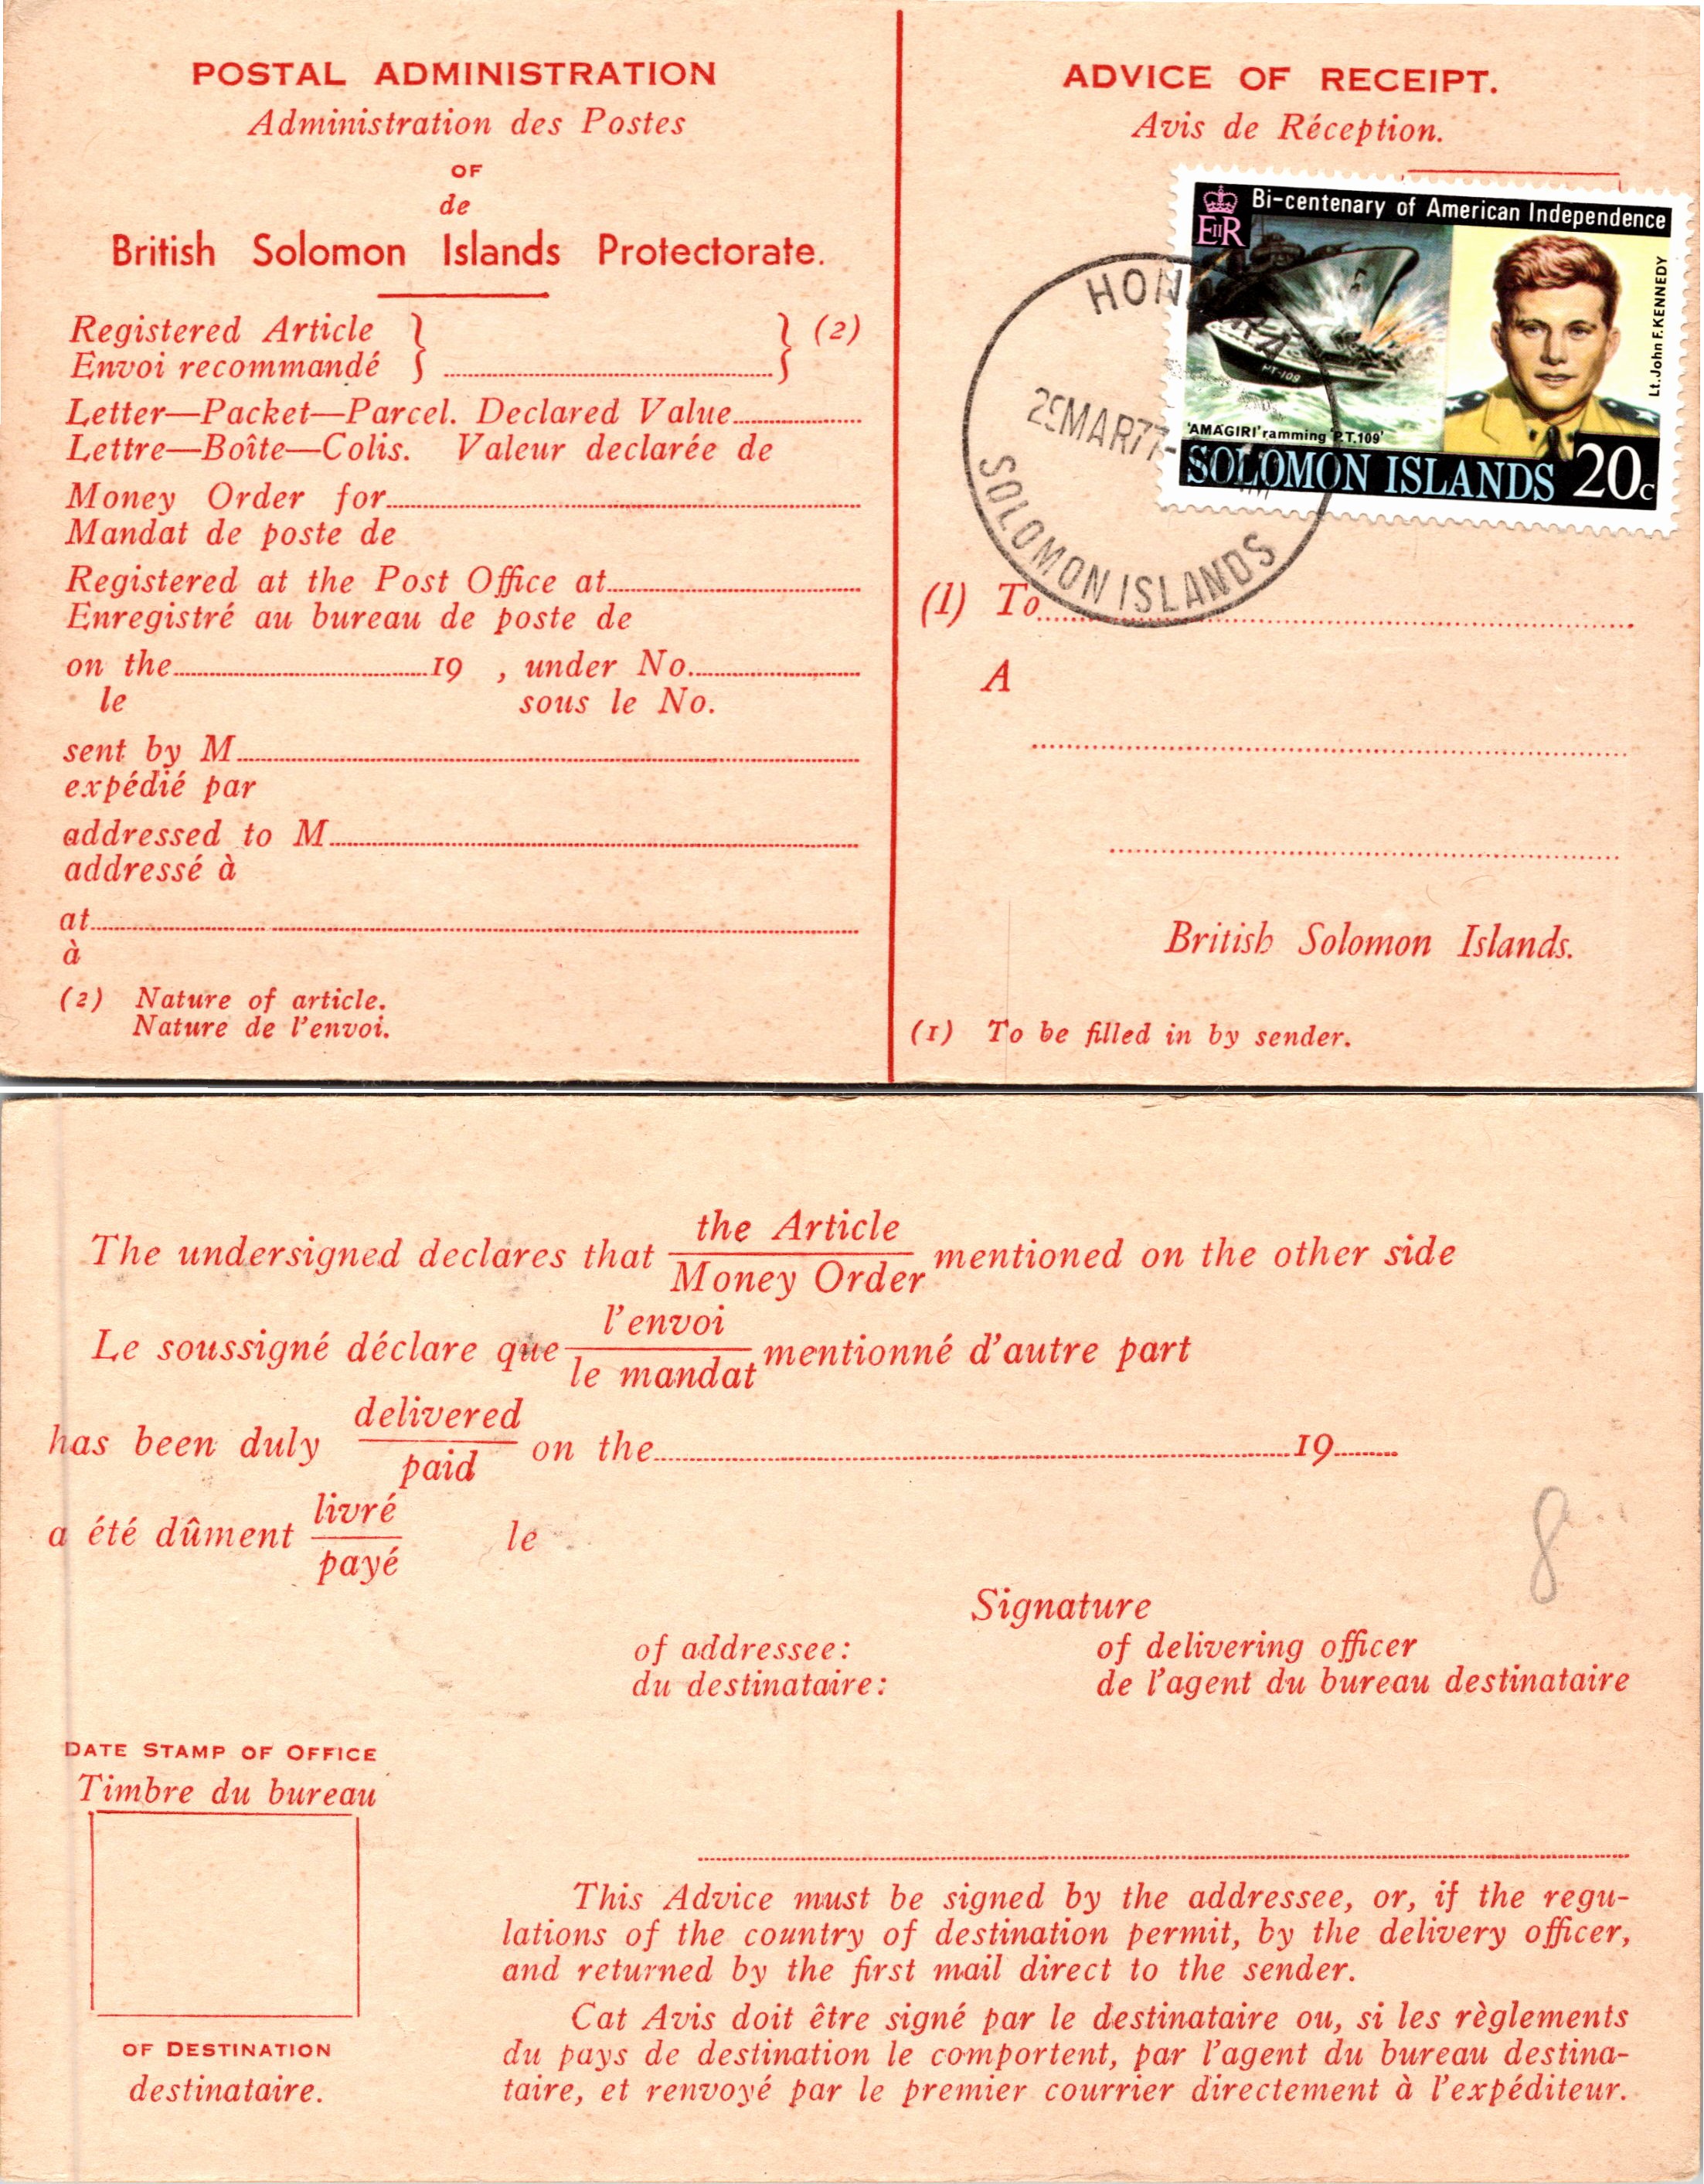 POSTAL ADMINISTRATION
Administration des Postes
OF
de
British Solomon Islands Protectorate.
Registered Article } } (2)
Envoi recommandé
Letter—Packet—Parcel. Declared Value
Lettre—Boîte—Colis. Valeur declarée de
Money Order for
Mandat de poste de
Registered at the Post Office at
Enregistré au bureau de poste de
on the 19 , under No.
le sous le No.
sent by M
expédié par
addressed to M
addressé à
at
à
(2) Nature of article.
Nature de l'envoi.
ADVICE OF RECEIPT.
Avis de Réception.
EIIR
Bi-centenary of American Independence
Lt. John F. KENNEDY
PT-109
'AMAGIRI' ramming 'P.T.109'
SOLOMON ISLANDS 20c
HONIARA
MAR77
SOLOMON ISLANDS
(1) To
A
British Solomon Islands.
(1) To be filled in by sender.
The undersigned declares that the Article / Money Order mentioned on the other side
Le soussigné déclare que l'envoi / le mandat mentionné d'autre part
has been duly delivered / paid on the 19
a été dûment livré / payé le
8
Signature
of addressee: of delivering officer
du destinataire: de l'agent du bureau destinataire
DATE STAMP OF OFFICE
Timbre du bureau
OF DESTINATION
destinataire.
This Advice must be signed by the addressee, or, if the regu-
lations of the country of destination permit, by the delivery officer,
and returned by the first mail direct to the sender.
Cat Avis doit être signé par le destinataire ou, si les règlements
du pays de destination le comportent, par l'agent du bureau destina-
taire, et renvoyé par le premier courrier directement à l'expéditeur.